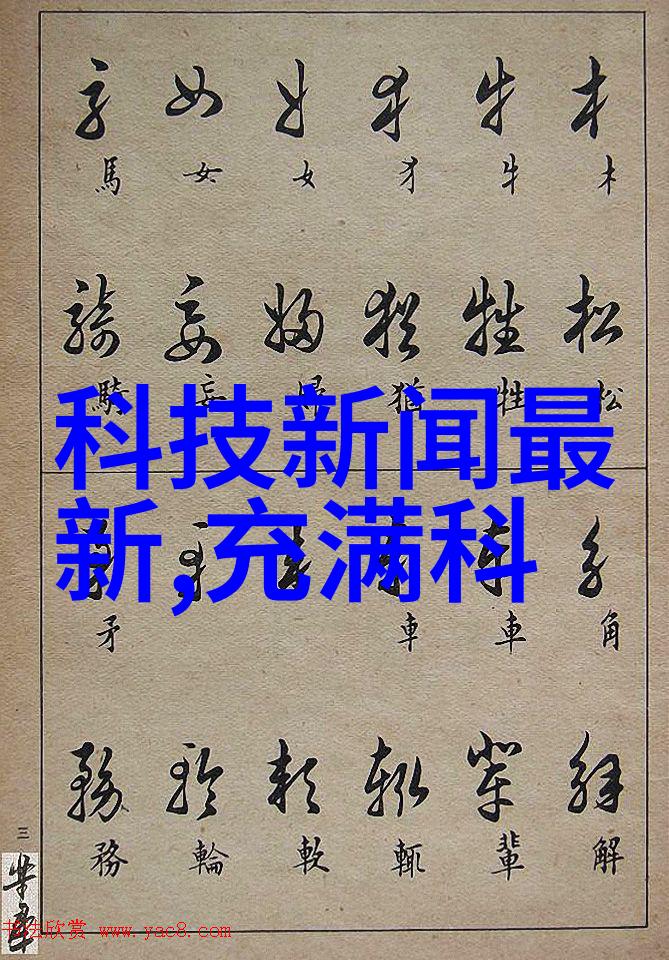 木 牛 犭 女 女 馬
松 牲 猶 婦 妄 騎
科技新闻最
新,充满科
角 車 車 矛
解 輩 輒 軟 輪 務
三
书法欣赏 www.yac8.com